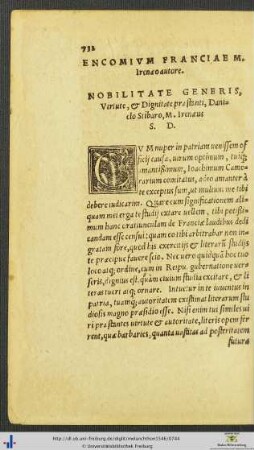 732
ENCOMIVM FRANCIAE M.
Irenæo autore.
NOBILITATE GENERIS,
Virtute, & Dignitate præstanti, Dani-
elo Stibaro, M. Irenæus
S. D.
CVM nuper in patriam uenissem of-
ficij causa, uirum optimum, tuiq;
amantißimum, Ioachimum Came-
rarium comitatus, adeo amanter à
te exceptus sum, ut multum me tibi
debere iudicarim. Quare cum significationem ali-
quam mei erga te studij extare uellem, tibi potißi-
mum hanc oratiunculam de Franciæ laudibus dedi
candam esse censui: quam eo tibi arbitrabar non in-
gratam fore, quod his exercitijs & literarũ studijs
te præcipue fauere scio. Nec uero quidquã hoc tuo
loco atq; ordine, cum in Reipu. gubernatione uer-
seris, dignius est, quàm ciuium studia excitare, & li
teras tueri atq; ornare. Intueor in te iuuentus in
patria, tuamq; autoritatem existimat literarum stu
diosis magno præsidio esse. Nisi enim tui similes ui
ri præstantes uirtute & autoritate, literis opem fer
rent, quæ barbaries, quanta uastitas ad posteritatem
futura
http://dl.ub.uni-freiburg.de/diglit/melanchthon1546/0744
© Universitätsbibliothek Freiburg